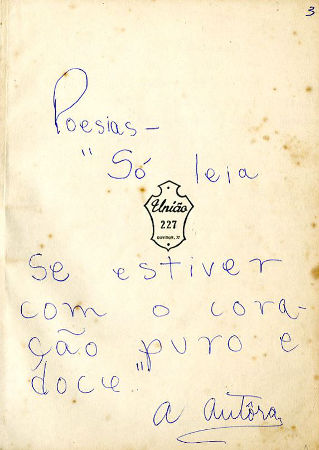 3
Poesias –
"Só leia
União
227
se estiver
com o cora-
ção puro e
doce"
a autôra